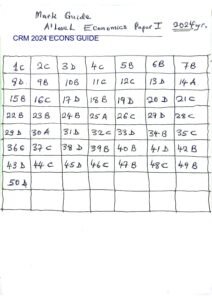 Mark Guide.
A'Level Economics Paper I 2024yr.
CRM 2024 ECONS GUIDE
1C 2C 3D 4C 5B 6B 7B
8D 9B 10B 11C 12C 13D 14A
15B 16C 17D 18B 19D 20D 21C
22B 23B 24B 25A 26C 27D 28C
29D 30A 31D 32C 33D 34B 35C
36C 37C 38D 39B 40B 41D 42B
43D 44C 45D 46C 47B 48C 49B
50D